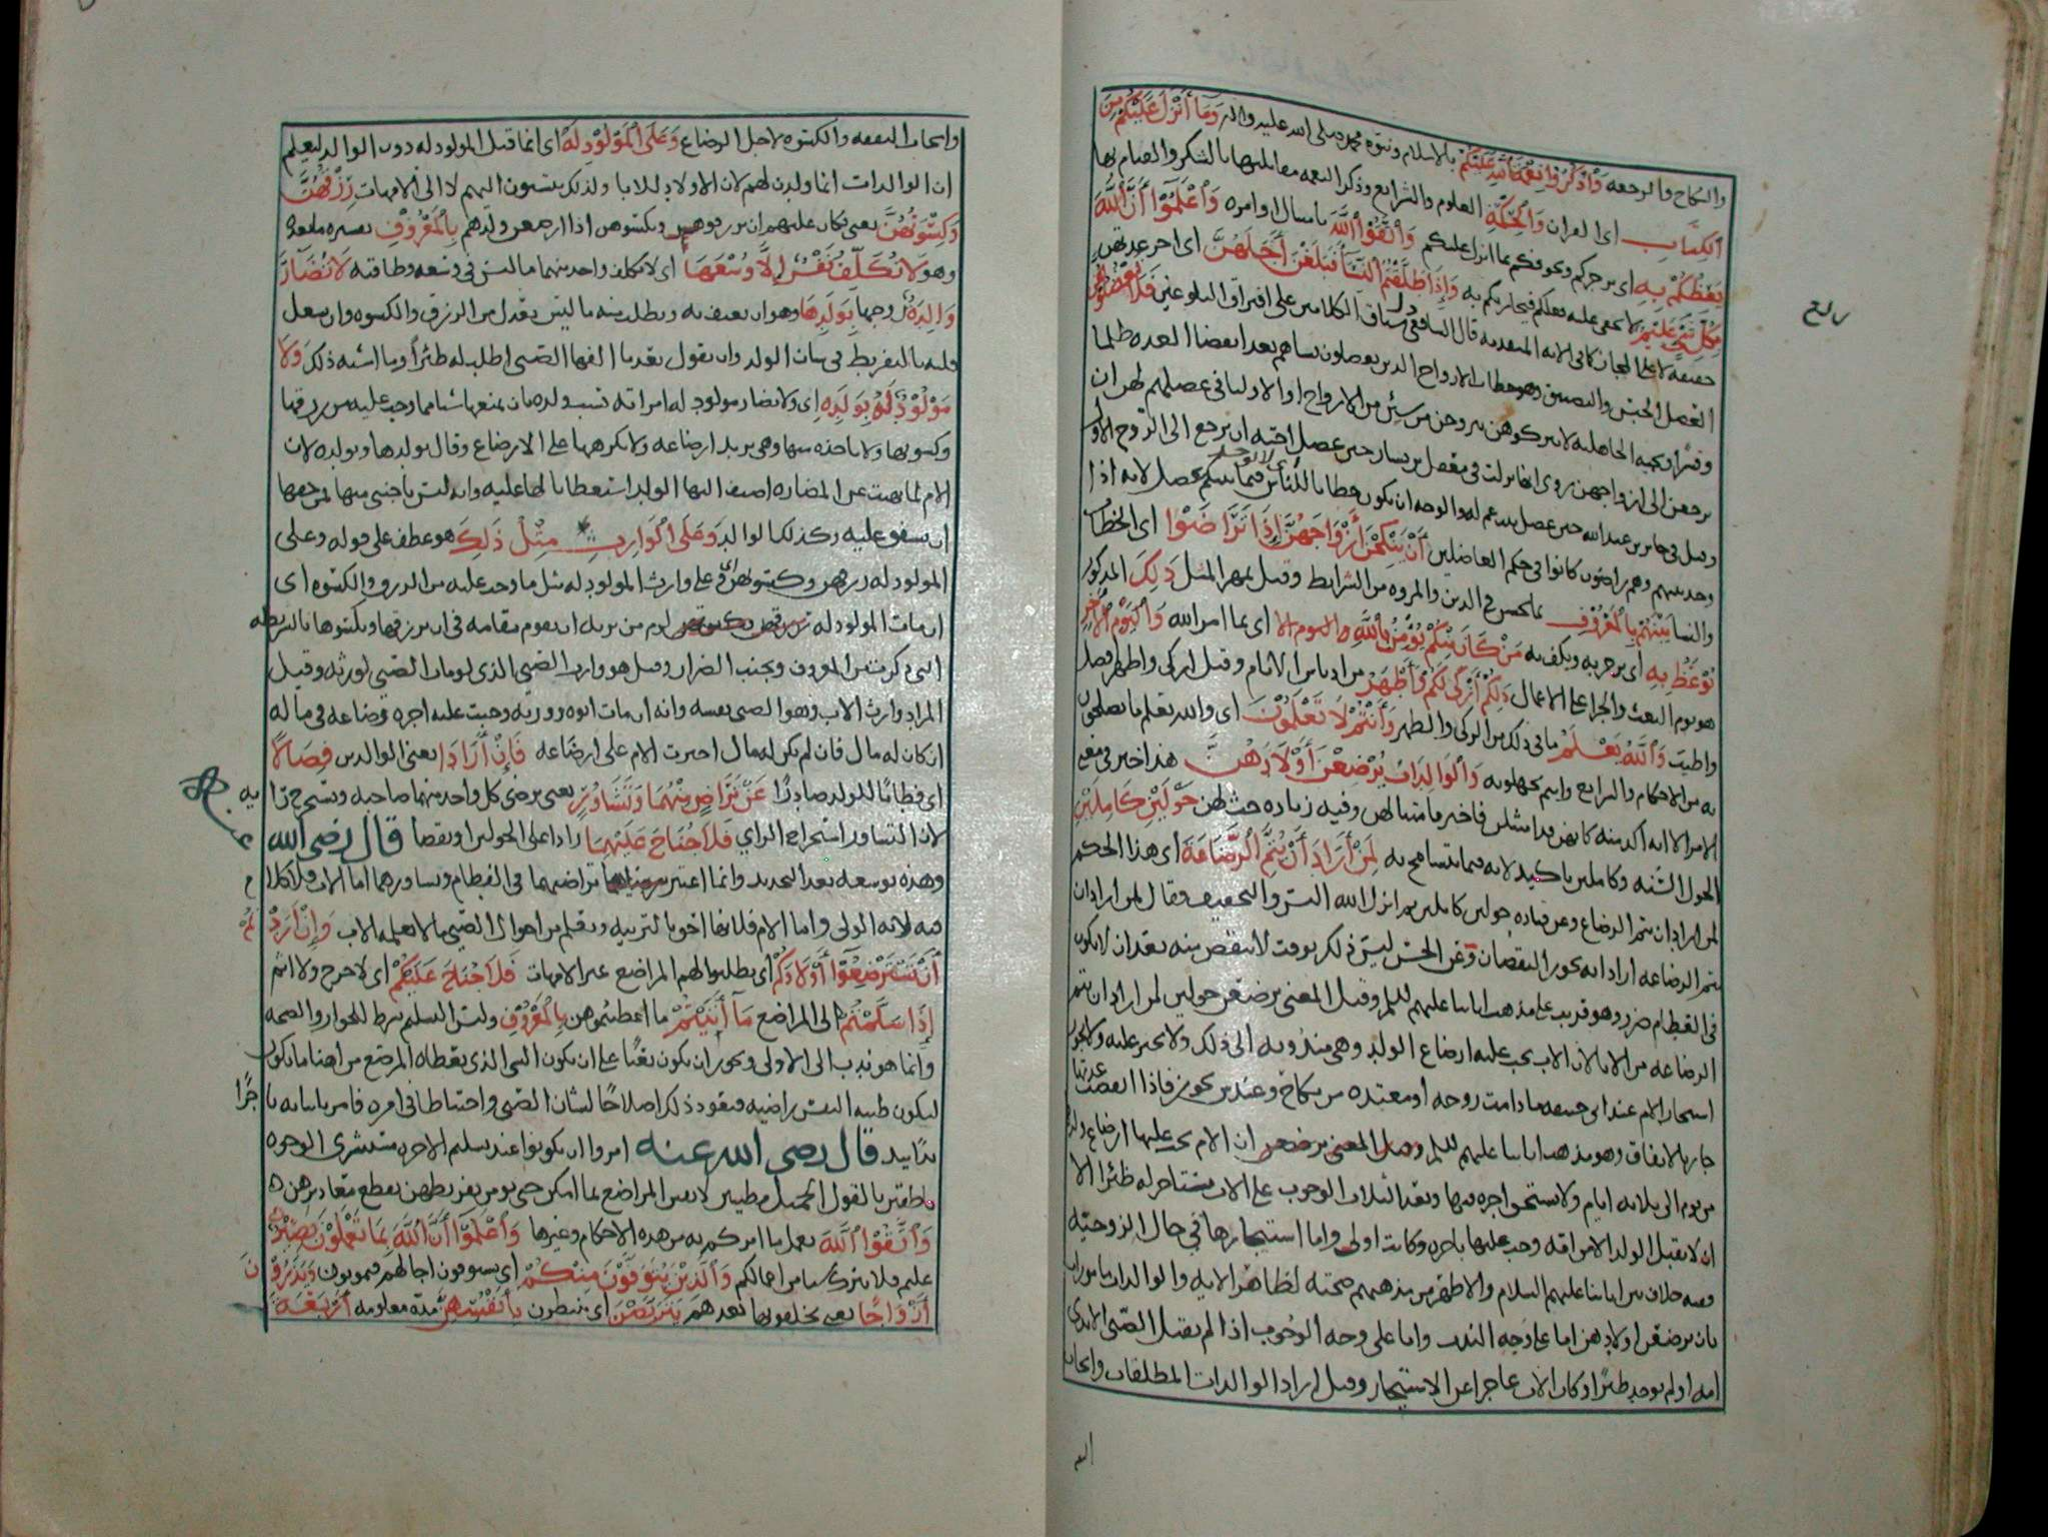 والنكاح والرجعه وَاذْكُرُوا نِعْمَةَ اللهِ عَلَيْكُمْ بالاسلام ونبوه محمد صلى الله عليه واله وَمَا أَنْزَلَ عَلَيْكُمْ مِنَ
الْكِتَابِ اى القران وَالْحِكْمَةِ العلوم والشرايع وذكر النعمه مقابلتها بالشكر والقيام بها
يَعِظُكُمْ بِهِ اى يزجركم ويخوفكم بما انزل عليكم وَاتَّقُوا اللهَ بامتثال اوامره وَاعْلَمُوا أَنَّ اللهَ
بِكُلِّ شَيْءٍ عَلِيمٌ لا يخفى عليه فعلكم فيجازيكم به وَإِذَا طَلَّقْتُمُ النِّسَاءَ فَبَلَغْنَ أَجَلَهُنَّ اى اخر عدتهن
حقيقه لا على المجاز كما فى الايه المتقدمه قال الشافعى دل سياق الكلامين على افتراق البلوغين فَلَا تَعْضُلُوهُنَّ
العضل الحبس والتضييق وهو خطاب للازواج الذين يعضلون نساهم بعد انقضا العده ظلما
وقسرا وحميه الجاهليه لا يتركوهن يتزوجن من شئن من الازواج او الاوليا فى عضلهم لهن ان
يرجعن الى ازواجهن روى انها نزلت فى معقل بن يسار حين عضل اخته ان ترجع الى الزوج الاول
وقيل فى جابر بن عبد الله حين عضل بنت عم له والوجه ان يكون خطابا للناس اى لا يوجد فيما بينكم عضل لانه اذا
وجد بينهم وهم راضون كانوا فى حكم العاضلين أَنْ يَنْكِحْنَ أَزْوَاجَهُنَّ إِذَا تَرَاضَوْا اى الخطاب
والنسا بَيْنَهُمْ بِالْمَعْرُوفِ بما يحسن فى الدين والمروه من الشرايط وقيل بمهر المثل ذَلِكَ المذكور
يُوعَظُ بِهِ اى يزجر به ويكف به مَنْ كَانَ مِنْكُمْ يُؤْمِنُ بِاللهِ اى بما امر الله وَالْيَوْمِ الْآخِرِ
هو يوم البعث والجزا على الاعمال ذَلِكُمْ أَزْكَى لَكُمْ وَأَطْهَرُ من ادناس الاثام وقيل ازكى واطهر افضل
واطيب وَاللهُ يَعْلَمُ ما فى ذلك من الزكى والطهر وَأَنْتُمْ لَا تَعْلَمُونَ اى والله يعلم ما تصلحون
به من الاحكام والشرايع وانتم تجهلونه وَالْوَالِدَاتُ يُرْضِعْنَ أَوْلَادَهُنَّ هذا خبر فى معنى
الامر الا انه اكد منه كانهن قد امتثلن فاخبر بامتثالهن وفيه زياده حث لهن حَوْلَيْنِ كَامِلَيْنِ
الحول السنه وكاملين تاكيد لانه مما يتسامح به لِمَنْ أَرَادَ أَنْ يُتِمَّ الرَّضَاعَةَ اى هذا الحكم
لمن اراد ان يتم الرضاع وعن قتاده حولين كاملين ثم انزل الله اليسر والتخفيف وقال لمن اراد ان
يتم الرضاعه اراد انه يجوز النقصان وعن الحسن ليس ذلك بوقت لا ينقص منه بعد ان لا يكون
فى الفطام ضرر وهو قريب على مذهب ابائنا عليهم السلم وقيل المعنى يرضعن حولين لمن اراد ان يتم
الرضاعه من الابا لان الاب يجب عليه ارضاع الولد وهى مندوبه الى ذلك ولا تجبر عليه ولا يجوز
استيجار الام عند ابى حنيفه ما دامت زوجه او معتده من نكاح وعند غيره يجوز فاذا انقضت عدتها
جاز بالاتفاق وهو مذهب ابائنا عليهم السلم وقيل المعنى يرضعن ان الام يجب عليها ارضاع ولدها
من يوم الى ثلاثه ايام ولا تستحق اجره فيها وبعد الثلاث الوجوب على الاب يستاجر له ظئرا الا
ان لا يقبل الولد الا من امه وجب عليها باجره وكانت اولى واما استيجارها فى حال الزوجيه
ففيه خلاف بين ابائنا عليهم السلام والاظهر من مذهبهم صحته لظاهر الايه والوالدات مامورات
بان يرضعن اولادهن اما على وجه الندب واما على وجه الوجوب اذا لم يقبل الصبى الا ثدى
امه او لم يوجد ظئر او كان الاب عاجزا عن الاستيجار وقيل اراد الوالدات المطلقات وايجاب
وايجاب النفقه والكسوه لاجل الرضاع وَعَلَى الْمَوْلُودِ لَهُ اى انما قيل المولود له دون الوالد ليعلم
ان الوالدات انما ولدن لهم لان الاولاد للابا ولذلك ينسبون اليهم لا الى الامهات رِزْقُهُنَّ
وَكِسْوَتُهُنَّ يعنى كان عليهم ان يرزقوهن ويكسوهن اذا ارضعن ولدهم بِالْمَعْرُوفِ تفسيره ما بعده
وهو لَا تُكَلَّفُ نَفْسٌ إِلَّا وُسْعَهَا اى لا يكلف واحد منهما ما ليس فى وسعه وطاقته لَا تُضَارَّ
وَالِدَةٌ زوجها بِوَلَدِهَا وهو ان تعنف به وتطلب منه ما ليس بعدل من الرزق والكسوه وان تشغل
قلبه بالتفريط فى شان الولد وان تقول بعد ما الفها الصبى اطلب له ظئرا وما اشبه ذلك وَلَا
مَوْلُودٌ لَهُ بِوَلَدِهِ اى ولا يضار مولود له امراته بسبب ولده بان يمنعها شيا مما وجب عليه من رزقها
وكسوتها ولا ياخذه منها وهى تريد ارضاعه ولا يكرهها على الارضاع وقال بولدها وبولده لان
الام لما نهيت عن المضاره اضيف اليها الولد استعطافا لها عليه وانه ليس باجنبى منها فمن حقها
ان تشفق عليه وكذلك الوالد وَعَلَى الْوَارِثِ مِثْلُ ذَلِكَ هو عطف على قوله وعلى
المولود له رزقهن وكسوتهن اى على وارث المولود له مثل ما وجب عليه من الرزق والكسوه اى
ان مات المولود له لزم من يرثه ان يقوم مقامه فى ان يرزقها ويكسوها بالشريطه
التى ذكرت من المعروف وتجنب الضرار وقيل هو وارث الصبى الذى لو مات الصبى لورثه وقيل
المراد وارث الاب وهو الصبى نفسه وانه ان مات ابوه وورثه وجبت عليه اجره رضاعه فى ماله
ان كان له مال فان لم يكن له مال اجبرت الام على ارضاعه فَإِنْ أَرَادَا يعنى الوالدين فِصَالًا
اى فطاما للولد صادرا عَنْ تَرَاضٍ مِنْهُمَا وَتَشَاوُرٍ يعنى يرضى كل واحد منهما صاحبه ويستخرج رايه
لان التشاور استخراج الراي فَلَا جُنَاحَ عَلَيْهِمَا زادا على الحولين او نقصا قال رضى الله
وهذه توسعه بعد التحديد وانما اعتبر تراضيهما فى الفطام وتشاورهما اما الاب فلا كلام
فيه لانه الولى واما الام فلانها احق بالتربيه وتعلم من احوال الصبى ما لا يعلمه الاب وَإِنْ أَرَدْتُمْ
أَنْ تَسْتَرْضِعُوا أَوْلَادَكُمْ اى يطلبوا لهم المراضع غير الامهات فَلَا جُنَاحَ عَلَيْكُمْ اى لا حرج ولا اثم
إِذَا سَلَّمْتُمْ الى المراضع مَا آتَيْتُمْ ما اعطيتموهن بِالْمَعْرُوفِ وليس التسليم بشرط للجواز والصحه
وانما هو ندب الى الاولى ويجوز ان يكون بعثا على ان يكون الشى الذى يعطاه المرضع من اهنا ما يكون
لتكون طيبه النفس راضيه فيعود ذلك اصلاحا لشان الصبى واحتياطا فى امره فامر بايتائه ناجزا
يدا بيد قال رضى الله عنه امروا ان يكونوا عند تسليم الاجره مستبشرى الوجوه
ناطقين بالقول الجميل مطيبين لانفس المراضع بما امكن حتى يومن تفريطهن بقطع معاذيرهن
وَاتَّقُوا اللهَ بعمل ما امركم به من هذه الاحكام وغيرها وَاعْلَمُوا أَنَّ اللهَ بِمَا تَعْمَلُونَ بَصِيرٌ
عليم فلا يترك شيا من اعمالكم وَالَّذِينَ يُتَوَفَّوْنَ مِنْكُمْ اى يستوفون اجالهم فيموتون وَيَذَرُونَ
أَزْوَاجًا يعنى يخلفونها بعدهم يَتَرَبَّصْنَ اى ينتظرن بِأَنْفُسِهِنَّ مده معلومه أَرْبَعَةَ